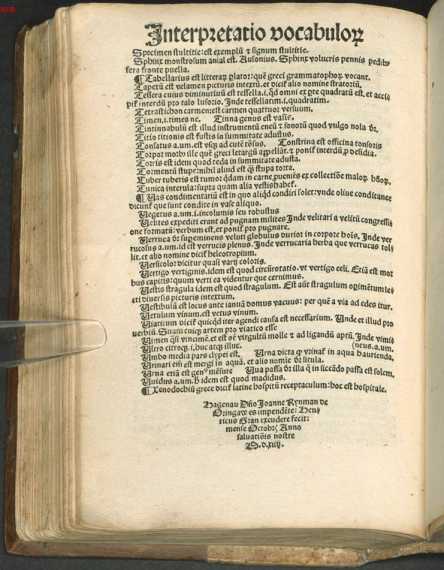 Interpretatio vocabuloꝝ
Specimen stultitie: est exemplū ⁊ signum stultitie.
Sphinx monstrosum anĩal est. Ausonius. Sphinx volucris pennis pedib⁹
fera fronte puella.
¶ Tabellarius est litteraꝝ plator: quē greci grammatophoꝝ vocant.
Tapetū est velamen picturis intextū. et dicit̃ alio nomine stratoriū.
Tessera cuius diminutiuū est tessella. i. qđ omni ex pte quadratū est. et accip
pit̃ interdū pro talo lusorio. Inde tessellatim. i. quadratim.
Tetrastichon carmen: est carmen quattuor versuum.
Timen. i. times ne. Tinna genus est vasis.
Tintinnabulū est illud instrumentū eneū ⁊ sonorū quod vulgo nola dr̃.
Titio titionis est fustis in summitate adustus.
Tonsus a. um. est vsq̃ ad cutē tōsus. Tonstrina est officina tonsoris
Torpor morb⁹ ille quē greci letargū appellāt. ⁊ ponit̃ interdū ꝓ desidia.
Torris est idem quod teda in summitate adusta.
Tormentū stupe: nihil aliud est q̃ȝ stupa torta.
Tuber tuberis est tumor qdam in carne ꝓueniens ex collectiōe maloꝝ hũoꝝ
Tunica interula: supta quam alia vestis habet̃.
¶ Vas condimentariū est in quo aliqđ condiri solet: vnde oliue conditanee
dicunt̃ que sunt condite in vase aliquo.
Vegetus a. um. i. incolumis seu robustus
Velites expediti erant ad pugnam milites Inde velitari a velitū congressi
one formatū: verbum est, et ponit̃ pro pugnare.
Verruca dr̃ supeminens velut globulus durior in corpore hoīs. Inde ver
rucosus a. um. id est verrucis plenus. Inde verrucaria herba que verrucas tol
lit. et alio nomine dicit̃ helcotropium.
Versicolor: dicitur quasi varij coloris.
Vertigo vertiginis. idem est quod circūrotatio. vt vertigo celi. Etiā est mor
bus capitis: quum verti ea videntur que cernimus.
Vestis stragula idem est quod stragulum. Est aūt stragulum opimētum le
cti diuersis picturis intextum.
Vestibulū est locus ante ianuā domus vacuus: per quē a via ad edes itur.
Vetulum vinum. est vetus vinum.
Viaticum dicit̃ quicqđ iter agendi causa est necessarium. Vnde et illud pro
verbiū. Suum cuiq̃ artem pro viatico esse
Vimen qsi vincimē. et est sic̃ virgulū molle ⁊ ad ligandū aptū. Inde vimi
Vltro citroq̃. i. huc atq̃ illuc. (neus. a. um.
Vmbo media pars clypei est. Vrna dicta ꝙ vrinat̃ in aqua haurienda.
Vrinari em̃ est mergi in aquā. et alio nomīe dr̃ situla.
Vrna etiā est gen⁹ mēsure Vua passa dr̃ illa q̃ in siccādo passa est solem.
Vuidus a. um. idem est quod madidus.
¶ Xenodochiū grece dicit̃ latine hospitū receptaculum: hoc est hospitale.
Hagenau Dño Joanne Rynman de
Oringaw es impendite: Hen
ricus Gran excudere fecit:
mense Octobȝ Anno
saluatiōis nostre
M.D.xiiij.